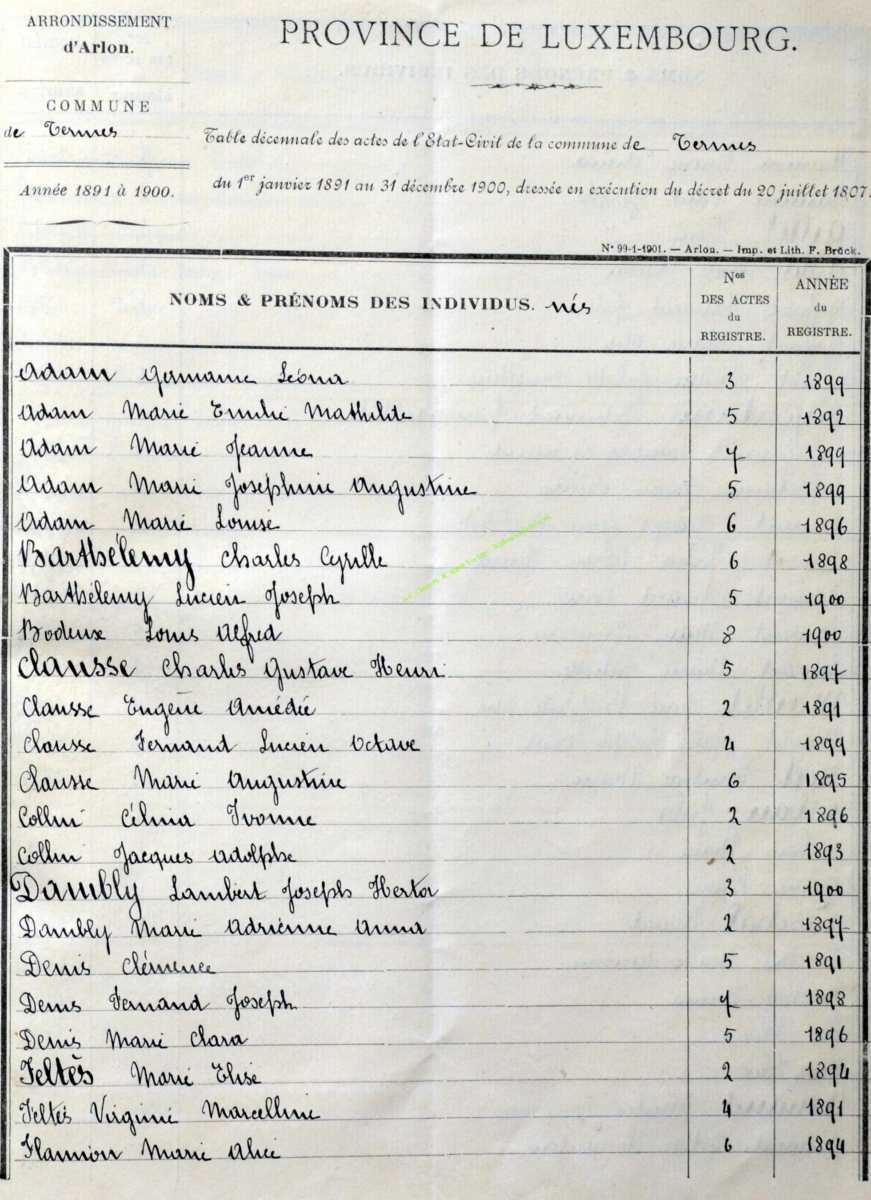 ARRONDISSEMENT
d'Arlon.
PROVINCE DE LUXEMBOURG.
COMMUNE
de Termes
Table décennale des actes de l'Etat-Civil de la commune de Termes
Année 1891 à 1900.
du 1er janvier 1891 au 31 décembre 1900, dressée en exécution du décret du 20 juillet 1807.
N° 99-1-1901. — Arlon. — Imp. et Lith. F. Brück.
NOMS & PRÉNOMS DES INDIVIDUS. nés
Nos DES ACTES du REGISTRE.
ANNÉE du REGISTRE.
Adam Germaine Léona 3 1899
Adam Marie Emilie Mathilde 5 1892
Adam Marie Jeanne 7 1899
Adam Marie Joséphine Augustine 5 1899
Adam Marie Louise 6 1896
Barthélemy Charles Cyrille 6 1898
Barthélemy Lucien Joseph 5 1900
Bodeux Louis Alfred 8 1900
Clausse Charles Gustave Henri 5 1897
Clausse Eugène Amédée 2 1891
Clausse Fernand Lucien Octave 4 1899
Clausse Marie Augustine 6 1895
Collin Célina Yvonne 2 1896
Collin Jacques Adolphe 2 1893
Dambly Lambert Joseph Hector 3 1900
Dambly Marie Adrienne Anna 2 1897
Denis Clémence 5 1891
Denis Fernand Joseph 7 1898
Denis Marie Clara 5 1896
Feltès Marie Elise 2 1894
Feltès Virginie Marcelline 4 1891
Flamion Marie Alice 6 1894